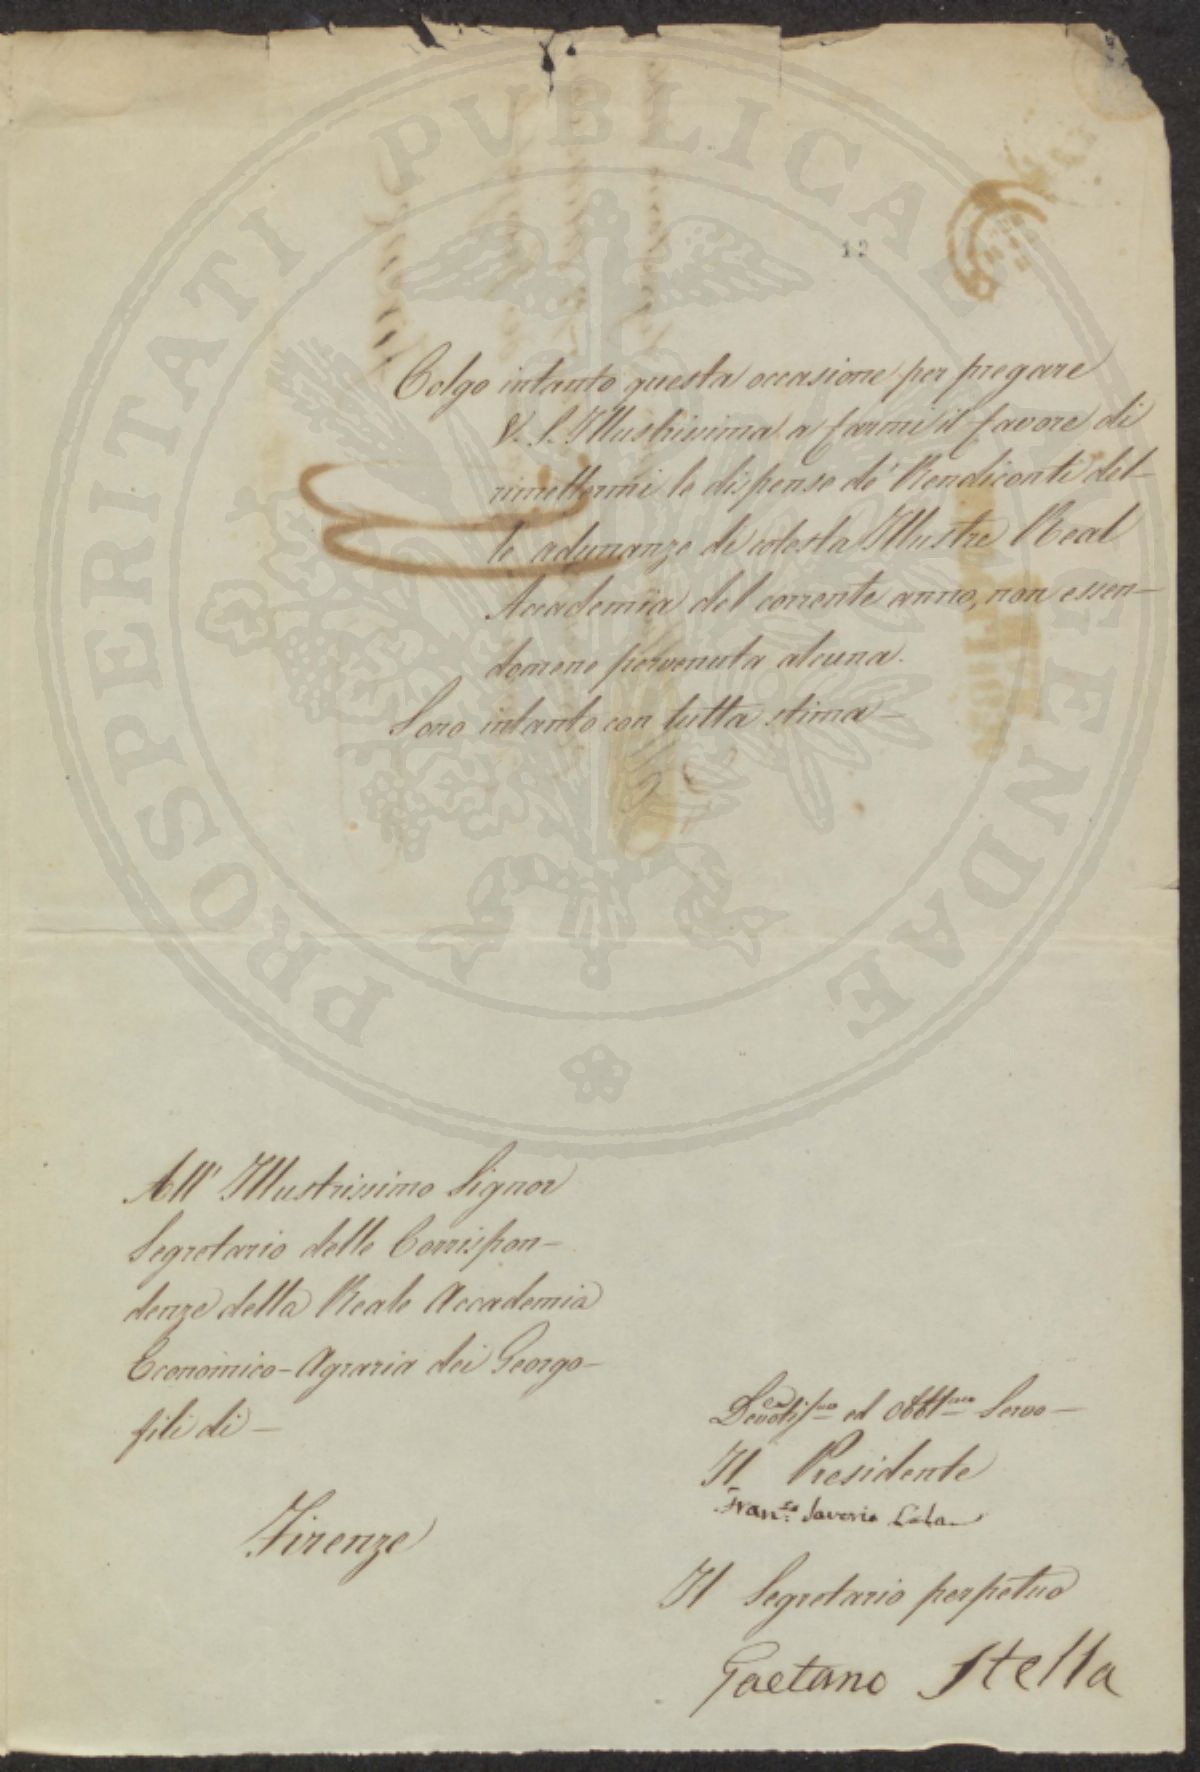 12
Colgo intanto questa occasione per pregare
V. S. Illustrissima a farmi il favore di
rimettermi le dispense de' Rendiconti del-
le adunanze di cotesta Illustre Real
Accademia del corrente anno, non essen-
domene pervenuta alcuna.
Sono intanto con tutta stima –
All' Illustrissimo Signor
Segretario delle Corrispon-
denze della Reale Accademia
Economico-Agraria dei Georgo-
fili di –
Firenze
ed Obblmo Servo –
Il Presidente
Franco: Saverio
Il Segretario perpetuo
Gaetano Stella
PROSPERITATI PUBLICAE AUGENDAE